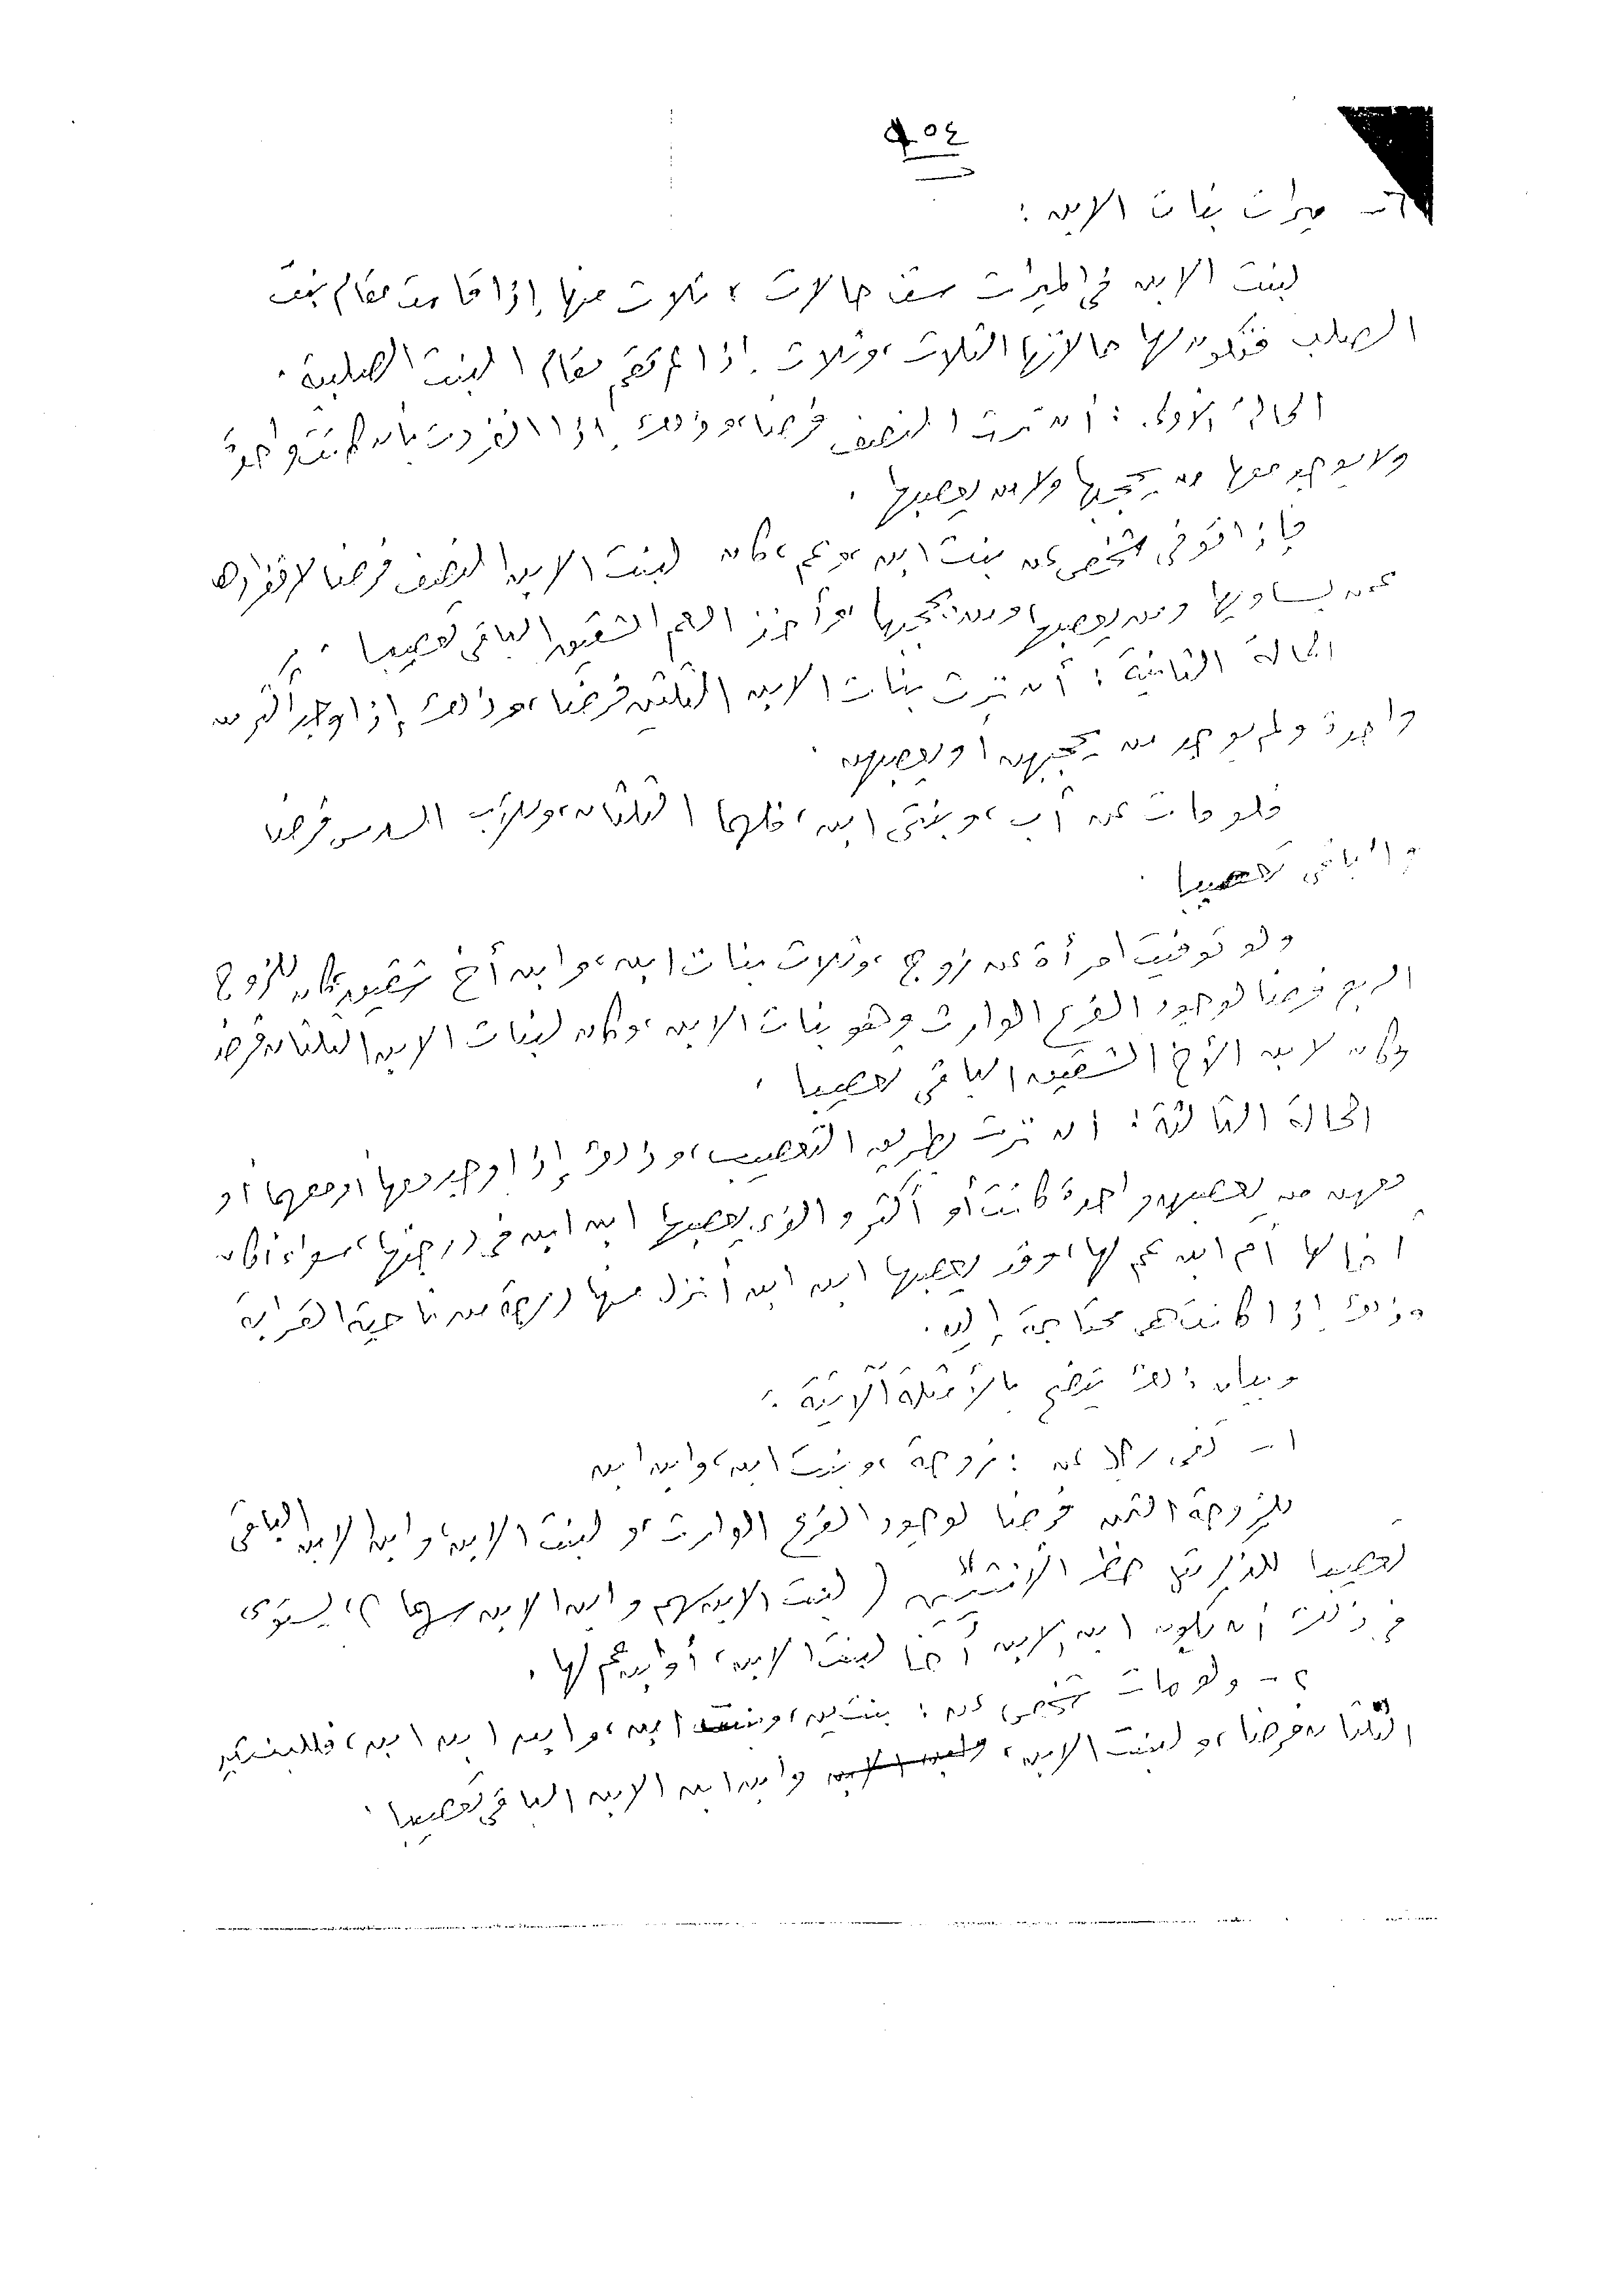 ٩٥٤
٦- ميراث بنات الابن :
لبنت الابن فى الميراث ست حالات ، ثلاث منها إذا قامت مقام بنت
الصلب فتكون لها حالاتها الثلاث ، وثلاث إذا لم تقم مقام البنت الصلبية .
الحالة الأولى : أن ترث النصف فرضا ، وذلك إذا انفردت بأن كانت واحدة
ولا يوجد معها من يحجبها ولا من يعصبها .
فإذا توفى شخص عن بنت ابن ، وعم ، كان لبنت الابن النصف فرضا لانفرادها
عمن يساويها ومن يعصبها ومن يحجبها ، وأخذ العم الشقيق الباقى تعصيبا .
الحالة الثانية : أن ترث بنات الابن الثلثين فرضا ، وذلك إذا وجد أكثر من
واحدة ولم يوجد من يحجبهن أو يعصبهن .
فلو مات عن أب ، وبنتى ابن ، فلهما الثلثان ، وللأب السدس فرضا
والباقى تعصيبا .
ولو توفيت امرأة عن زوج ، وثلاث بنات ابن ، وابن أخ شقيق ، كان للزوج
الربع فرضا لوجود الفرع الوارث وهو بنات الابن ، وكان لبنات الابن الثلثان فرضا
وكان لابن الأخ الشقيق الباقى تعصيبا .
الحالة الثالثة : أن ترث بطريق التعصيب ، وذلك إذا وجد معها أو معهما أو
معهن من يعصبهن واحدة كانت أو أكثر والذى يعصبها ابن ابن فى درجتها ، سواء أكان
أخا لها أم ابن عم لها ، وقد يعصبها ابن ابن أنزل منها درجة من ناحية القرابة
وذلك إذا كانت هى محتاجة إليه .
وبيان ذلك يتضح بالأمثلة الآتية :
١- توفى رجل عن : زوجة ، وبنت ابن ، وابن ابن
للزوجة الثمن فرضا لوجود الفرع الوارث ، ولبنت الابن ، وابن الابن الباقى
تعصيبا للذكر مثل حظ الأنثيين ( لبنت الابن سهم وابن الابن سهمان ) ، يستوى
فى ذلك أن يكون ابن الابن أخا لبنت الابن ، أو ابن عم لها .
٢- ولو مات شخص عن : بنتين ، وبنت ابن ، وابن ابن ابن ، فللبنتين
الثلثان فرضا ، ولبنت الابن ، وابن ابن الابن الباقى تعصيبا .